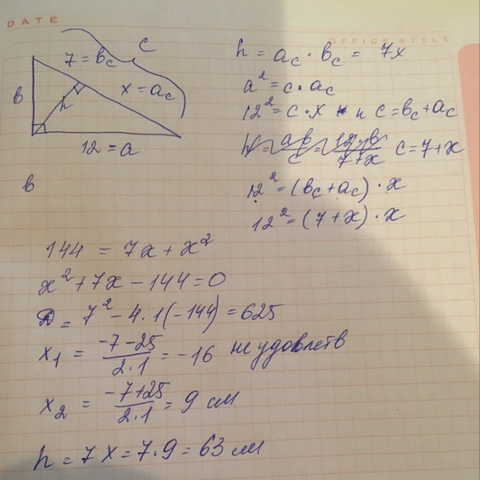 DATE
OFFICE STYLE
7 = b_c
c
в
h
x = a_c
12 = a
в
h = a_c · b_c = 7x
a² = c · a_c
12² = c · x и c = b_c + a_c
c = 7 + x
12² = (b_c + a_c) · x
12² = (7 + x) · x
144 = 7x + x²
x² + 7x − 144 = 0
D = 7² − 4 · 1 (−144) = 625
x₁ = (−7 − 25)/(2 · 1) = −16 не удовлетв
x₂ = (−7 + 25)/(2 · 1) = 9 см
h = 7x = 7 · 9 = 63 см